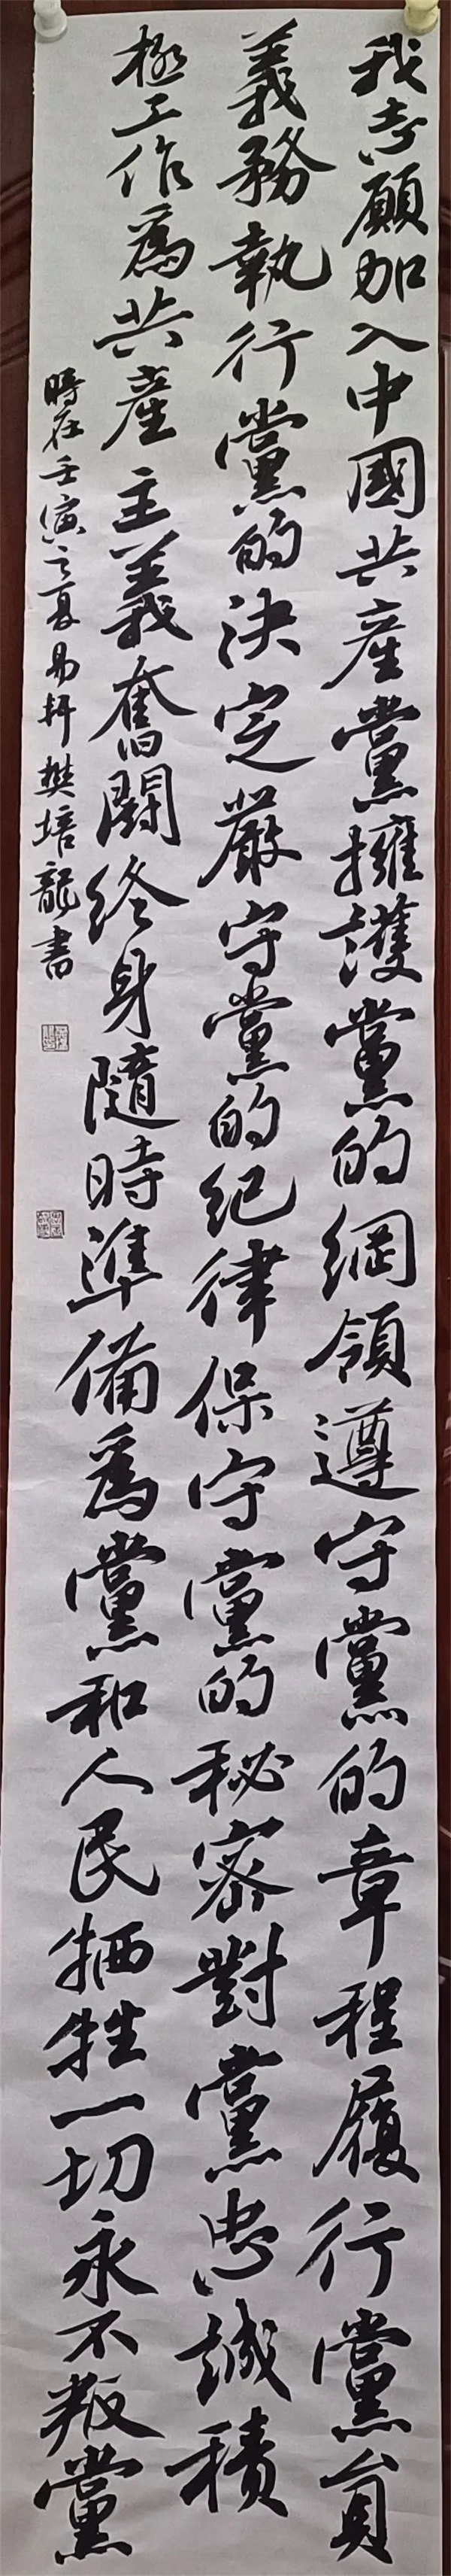 我志願加入中國共產黨擁護黨的綱領遵守黨的章程履行黨員
義務執行黨的決定嚴守黨的紀律保守黨的秘密對黨忠誠積
極工作為共產主義奮鬪終身隨時準備為黨和人民犧牲一切永不叛黨
時在壬寅之夏易軒樊培龍書